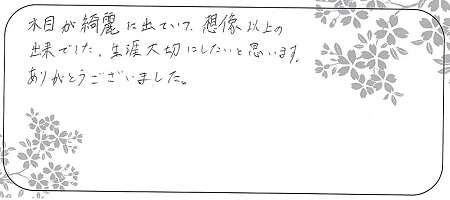 木目が綺麗に出ていて、想像以上の
出来でした。生涯大切にしたいと思います。
ありがとうございました。